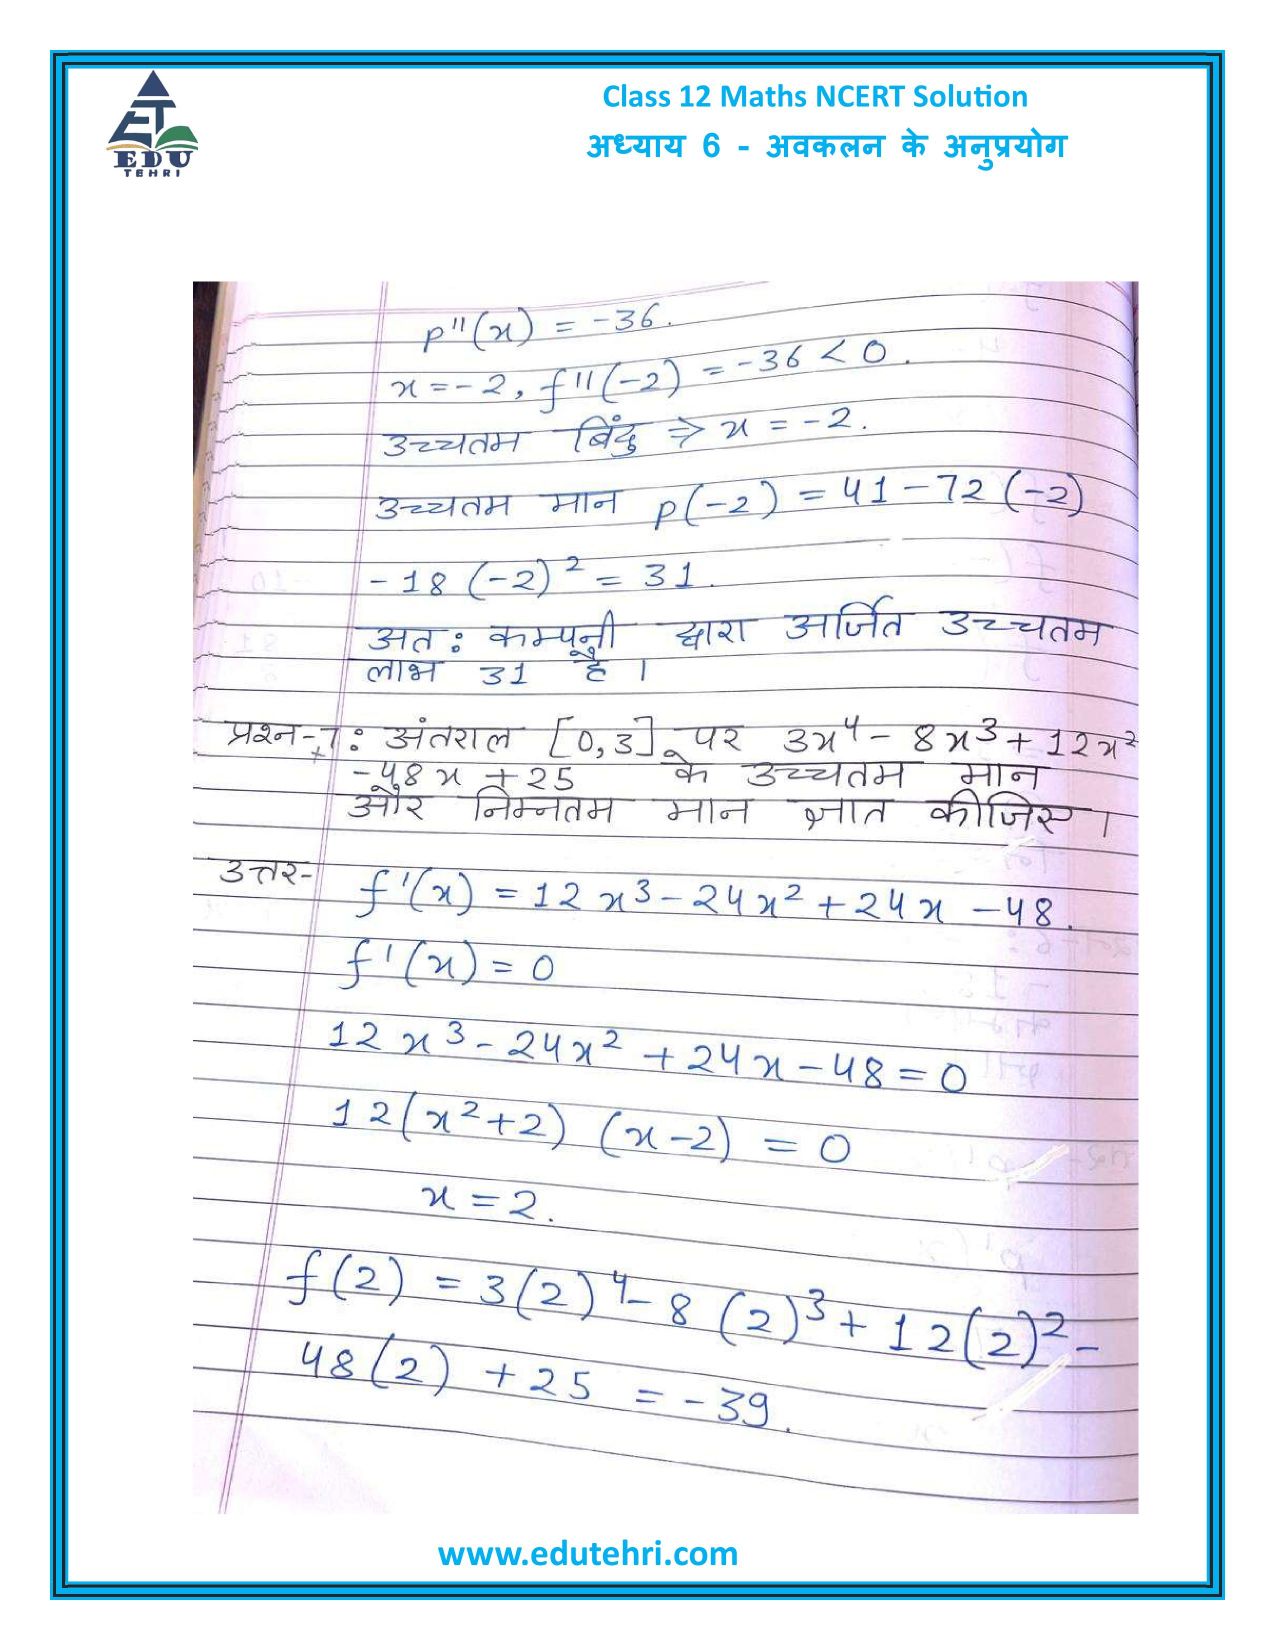 ET
EDU
TEHRI
Class 12 Maths NCERT Solution
अध्याय 6 - अवकलन के अनुप्रयोग
p''(x) = -36.
x = -2, f''(-2) = -36 < 0.
उच्चतम बिंदु ⇒ x = -2.
उच्चतम मान p(-2) = 41 - 72(-2)
-18(-2)² = 31.
अत: कम्पनी द्वारा अर्जित उच्चतम
लाभ 31 है।
प्रश्न-7: अंतराल [0,3] पर 3x⁴ - 8x³ + 12x²
-48x + 25 के उच्चतम मान
और निम्नतम मान ज्ञात कीजिए।
उत्तर- f'(x) = 12x³ - 24x² + 24x - 48.
f'(x) = 0
12x³ - 24x² + 24x - 48 = 0
12(x²+2) (x-2) = 0
x = 2.
f(2) = 3(2)⁴ - 8(2)³ + 12(2)² -
48(2) + 25 = -39.
www.edutehri.com